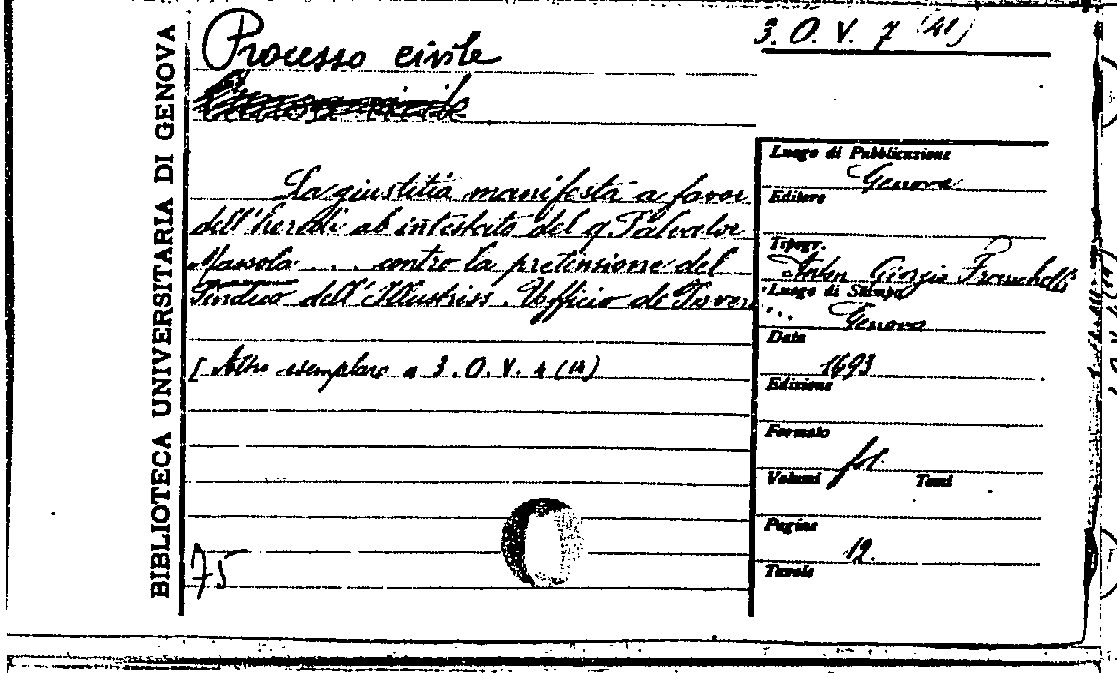 BIBLIOTECA UNIVERSITARIA DI GENOVA
Processo civile
3. O. V. 7 (41)
La giustitia manifesta a favor
dell'heredi ab intestato del q. Salvator
Massola .... contro la pretensione del
Sindico dell'Illustriss. Ufficio de Poveri
...
[Altro esemplare a 3. O. V. 4 (14)
75
Luogo di Pubblicazione
Genova
Editore
Tipogr.
Anton Giorgio Franchelli
Luogo di Stampa
Genova
Data
1693
Edizione
Formato
fol.
Volumi Tomi
Pagine
12.
Tavole